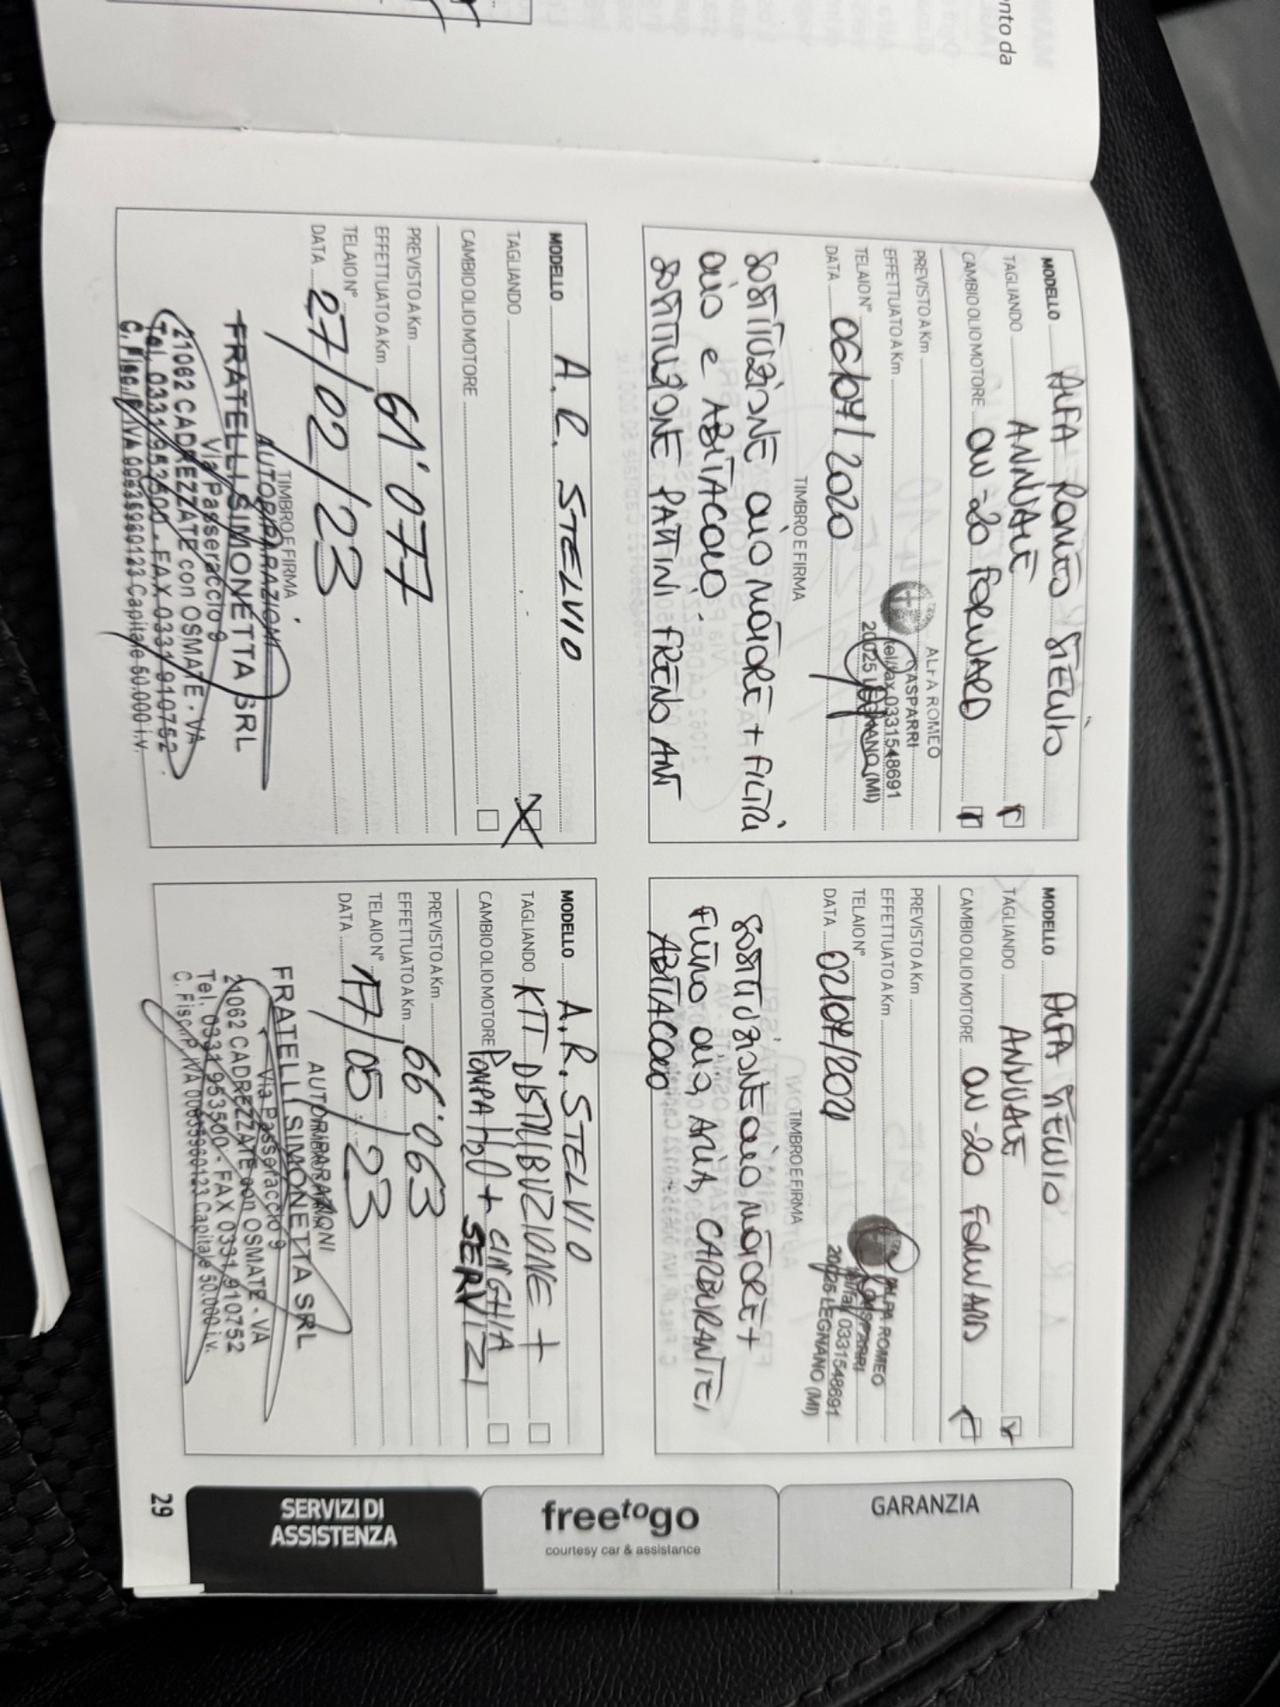 ento da
MODELLO ALFA ROMEO STELVIO
TAGLIANDO ANNUALE
CAMBIO OLIO MOTORE OW-20 FORWARD
PREVISTO A Km
EFFETTUATO A Km
TELAIO N°
DATA 06/07/2020
ALFA ROMEO
GASPARRI
tel/fax 0331548691
20025 LEGNANO (MI)
TIMBRO E FIRMA
SOSTITUZIONE OLIO MOTORE + FILTRI
OLIO e ABITACOLO.
SOSTITUZIONE PATTINI FRENO ANT
MODELLO ALFA STELVIO
TAGLIANDO ANNUALE
CAMBIO OLIO MOTORE OW-20 FORWARD
PREVISTO A Km
EFFETTUATO A Km
TELAIO N°
DATA 02/07/2021
ALFA ROMEO
GASPARRI
tel/fax 0331548691
20025 LEGNANO (MI)
TIMBRO E FIRMA
SOSTITUZIONE OLIO MOTORE +
FILTRO OLIO, ARIA, CARBURANTE,
ABITACOLO
MODELLO A. R. STELVIO
TAGLIANDO X
CAMBIO OLIO MOTORE
PREVISTO A Km
EFFETTUATO A Km 61'077
TELAIO N°
DATA 27/02/23
TIMBRO E FIRMA
AUTORIPARAZIONI
FRATELLI SIMONETTA SRL
Via Passeraccio 9
21062 CADREZZATE con OSMATE - VA
Tel. 0331 953500 - FAX 0331 910752
C. Fisc./P. IVA 00635960123 Capitale 50.000 i.v.
MODELLO A.R. STELVIO
TAGLIANDO KIT DISTRIBUZIONE +
CAMBIO OLIO MOTORE POMPA H2O + CINGHIA
SERVIZI
PREVISTO A Km
EFFETTUATO A Km 66'063
TELAIO N°
DATA 17/05/23
AUTORIPARAZIONI
FRATELLI SIMONETTA SRL
Via Passeraccio 9
21062 CADREZZATE con OSMATE - VA
Tel. 0331 953500 - FAX 0331 910752
C. Fisc./P. IVA 00635960123 Capitale 50.000 i.v.
GARANZIA
freetogo
courtesy car & assistance
SERVIZI DI
ASSISTENZA
29